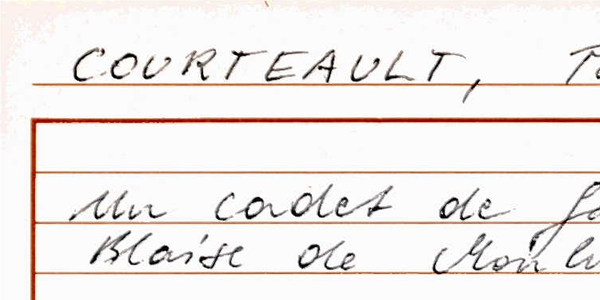 COURTEAULT,
Un cadet de
Blaise de